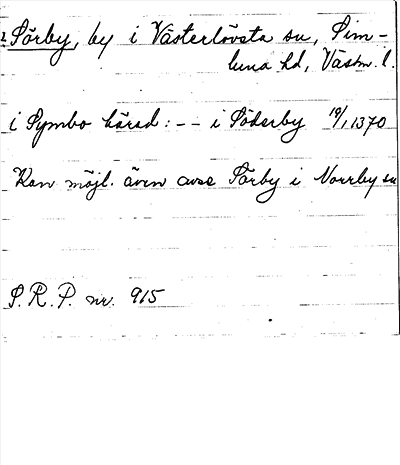 Sörby, by i Västerlövsta sn, Sim-
luna hd, Västm. l.
i Symbo härad: -- i Söderby 19/1 1370
Kan möjl. även avse Sörby i Norrby sn
S.R.P. nr. 915